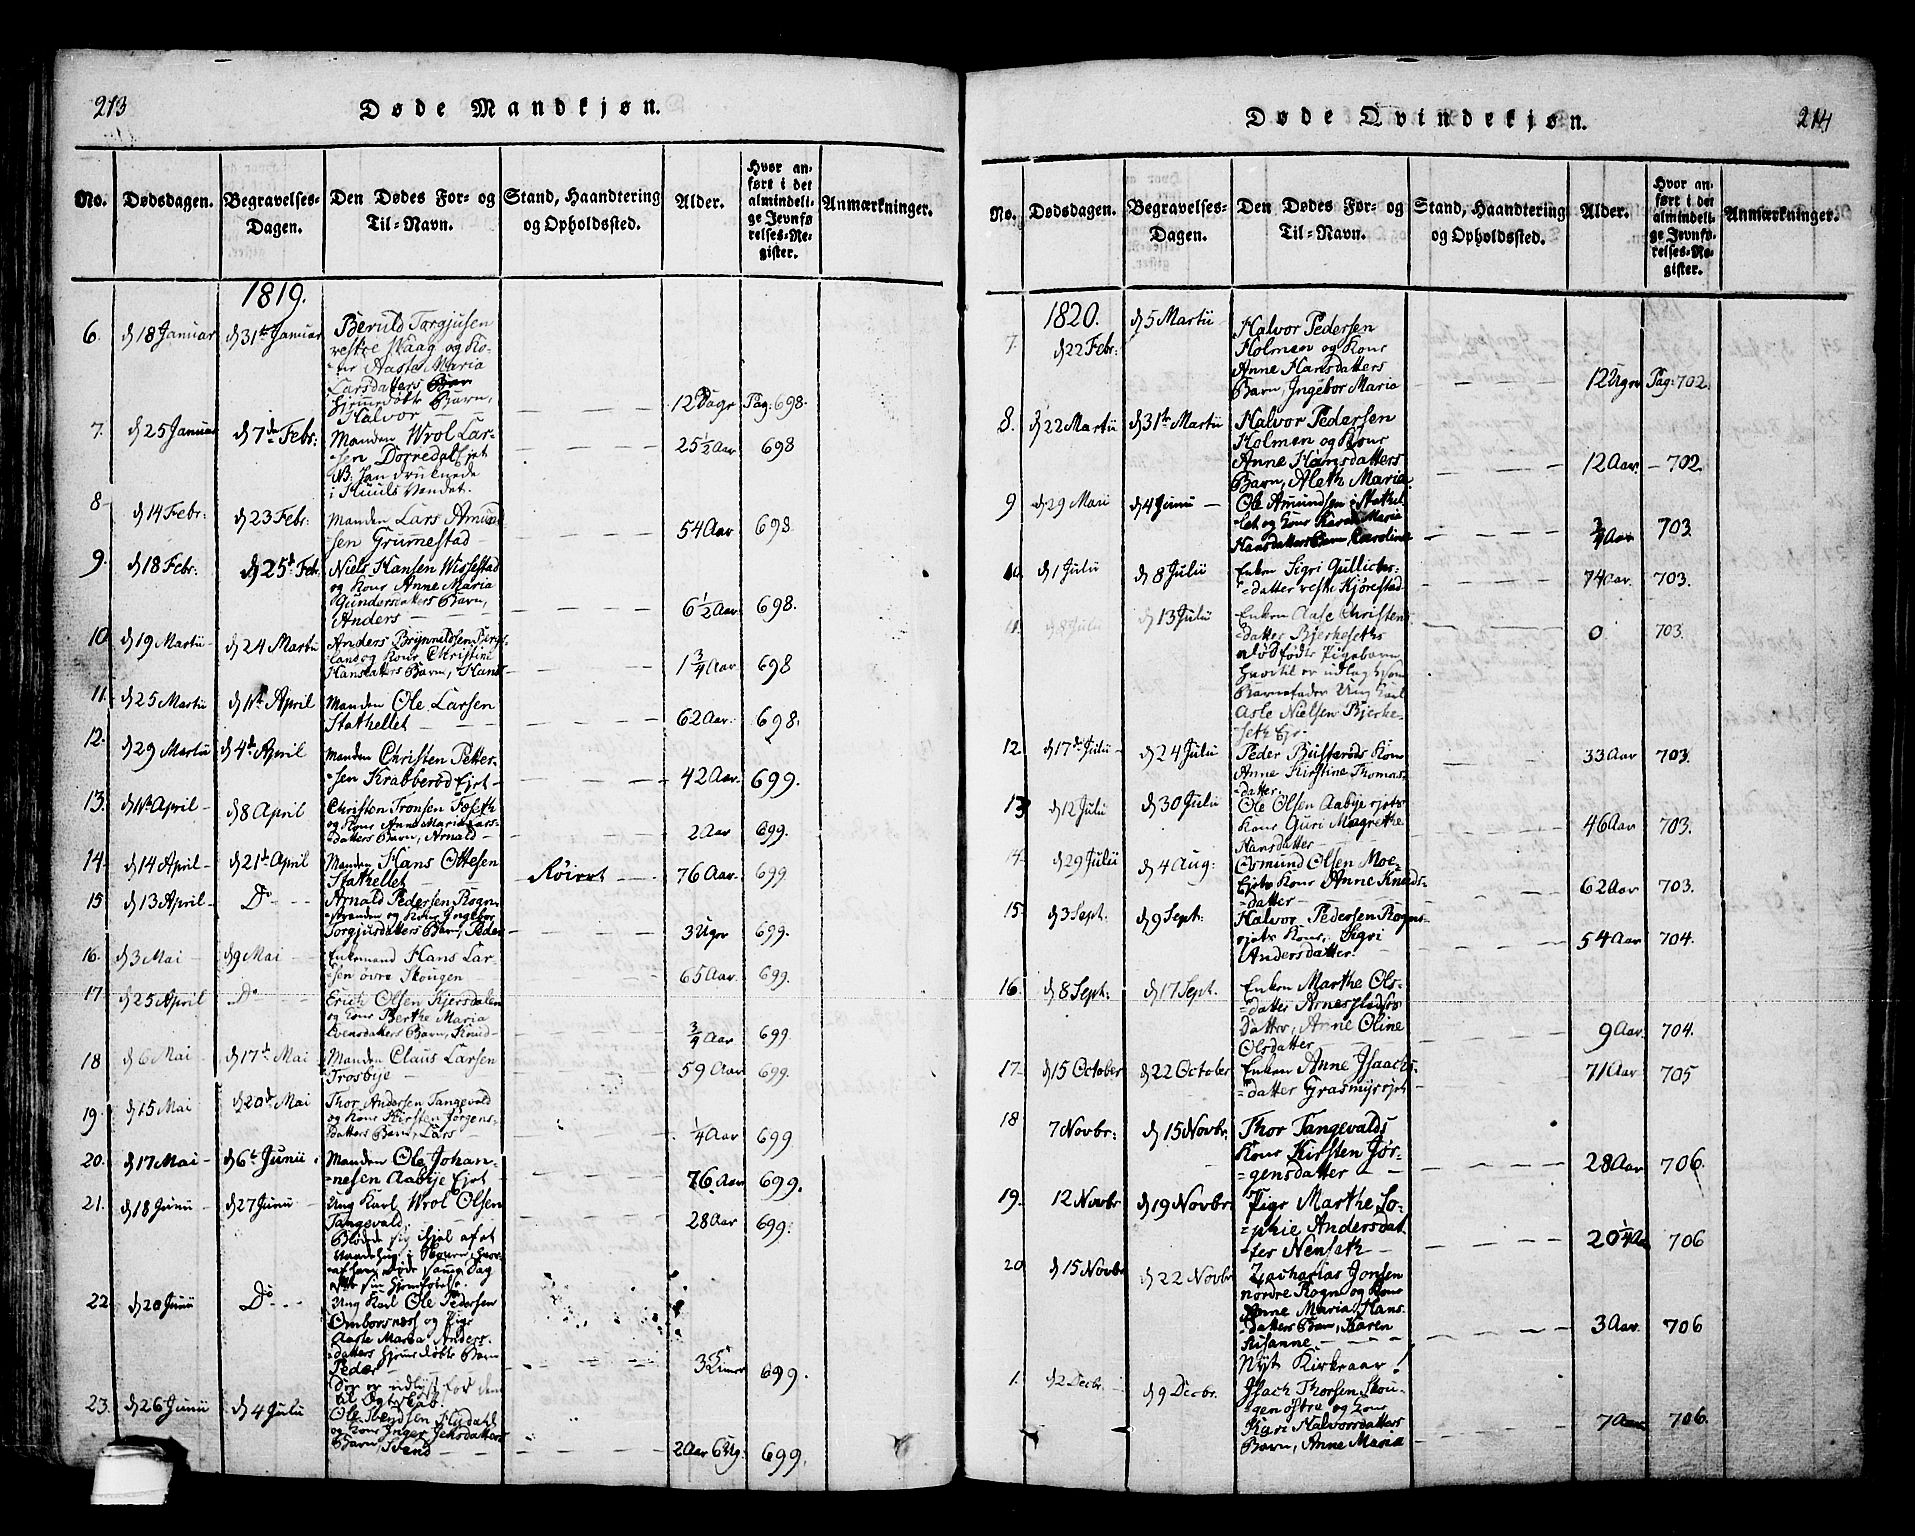 213
Døde Mandkjøn.
No. Dødsdagen. Begravelses-Dagen. Den Dødes For- og Til-Navn. Stand, Haandtering og Opholdssted. Alder. Hvor anført i det almindelige Jevnførelses-Register. Anmærkninger.
1819.
6. d 18 Januar d 31te Januar Beruld Torgjusen
vestre Skaag og Ko-
ne Aaste Maria
Larsdatters
hjemmedøbte Barn,
Halvor 12 Dage Pag: 698.
7. d 25 Januar d 7de Febr: Manden Wrol Lar-
sen Dorredal Ejet
NB: han druknede
i Vandet. 25 1/2 Aar 698
8 d 14 Febr: d 23 Febr: Manden Lars Amund-
sen Grummestad 54 Aar 698.
9. d 18 Febr: d 25de Feb Niels Hansen Wissestad
og Kone Anne Maria
Gundersdatters Barn,
Anders 6 1/2 Aar 698.
10. d 19 Martii d 24 Martii Anders Brynnildsen
land og Kone Christine
Hansdatters Barn, Hans 1 3/4 Aar 698
11. d 25 Martii d 1ste April Manden Ole Larsen
Stathellet 62 Aar. 698.
12. d 29 Martii d 4de April Manden Christen Petter-
sen Krabberød Ejet 42 Aar. 699.
13. d 1ste April d 8 April Christen Tronsen Foseth
og Kone Anne Maria Lars-
datters Barn, Arnald 2 Aar 699.
14. d 14 April d 21de April Manden Hans Ottesen
Stathellet 76 Aar. 699
15 d 13 April Do Arnald Pedersen Rogn-
stranden og Kone Ingebor
Torgjusdatters Barn, Peder 3 Uger 699.
16. d 3 Mai d 9 Mai Enkemand Hans Lar-
sen øvre Skougen 65 Aar. 699.
17 d 25 April Do Erich Olsen Kjersdalen
og Kone Berthe Maria
Evensdatters Barn, Knud 3/4 Aar 699.
18 d 6 Mai d 17de Mai Manden Claus Larsen
Trosbye 59 Aar 699.
19. d 15 Mai d 20de Mai Thor Andersen Tangevald
og Kone Kirsten Jørgens-
datters Barn, Lars 1/4 Aar 699
20. d 17 Mai d 6te Junii Manden Ole Johan-
nesen Aabye Ejet 76 Aar 699.
21. d 18 Junii d 27 Junii Ung Karl Wrol Olsen
Tangevald,
Blødde sig ihjel af et
i Skouen, hvor-
af han døde samme Dag 28 Aar 699.
22 d 20 Junii Do Ung Karl Ole Pedersen
Omborsness og Pige
Aaste Maria Anders-
datters hjemmedøbte Barn
Peder 699.
Der er udlyst for dem
til Egteskab.
23. d 26 Junii d 4 Julii Ole Svendsen Fludahl
og Kone Inger Jensdatters
Barn, Svend 2 Aar 6 Ug: 699.
214
Døde Qvindekjøn.
No. Dødsdagen. Begravelses-Dagen. Den Dødes For- og Til-Navn. Stand, Haandtering og Opholdssted. Alder. Hvor anført i det almindelige Jevnførelses-Register. Anmærkninger.
1820.
7. d 22 Febr: d 5 Martii Halvor Pedersen
Holmen og Kone
Anne Hansdatters
Barn, Ingebor Maria 12 Uger Pag: 702.
8. d 22 Martii d 31te Martii Halvor Pedersen
Holmen og Kone
Anne Hansdatters
Barn, Aleth Maria 12 Aar 702
9 d 29 Mari d 4 Junii Ole Amundsen i Stathel-
let og Kone Karen Maria
Hansdatters Barn, Caroline 3/4 Aar 703
10. d 1 Julii d 8 Julii Enken Sigri Gullichs-
datter vestre Kjørestad 74 Aar. 703.
11. d 8 Julii d 13 Julii Enken Aase Christens-
datter Bjerkeseths
dødfødte Pigebarn
hvortil er udlagt som
Barnefader Ung Karl
Asle Nielsen Bjerke-
seth Eje 0 703.
12. d 17de Julii d 24 Julii Peder Busterøds Kone
Anne Kirstine Thomas-
datter. 33 Aar 703
13 d 12 Julii d 30 Julii Ole Olsen Aabye ejets
Kone Guri Magrethe
Hansdatter 46 Aar 703.
14. d 29 Julii d 4 Aug: Osmund Olsen Moe-
Ejets Kone Anne Knuds-
datter 62 Aar 703.
15. d 3 Sept. d 9 Sept: Halvor Pedersen Rogns-
ejets Kone, Sigri
Andersdatter. 54 Aar 704.
16. d 8 Sept: d 17 Sept. Enken Marthe Ols-
datter Arnespladsens
Datter, Anne Oline
Olsdatter 9 Aar 704.
17. d 15 October d 22 October Enken Anne Isaachs-
datter Grasmyrejet 71 Aar 705
18 7 Novbr: d 15 Novbr. Thor Tangevalds
Kone Kirsten Jør-
gensdatter 28 Aar 706.
19. 12 Novbr d 19 Novbr. Pige Marthe So-
phie Andersdat-
ter Nenseth 20 1/4 Aar 706
20 d 15 Novbr d 22 Novbr Zacharias Jonsen
nordre Rogn og Kone
Anne Maria Hans-
datters Barn, Karen
Susanne 3 Aar. 706
Nyt Kirkeaar!
1. d 2 Decbr. d 9 Decbr. Isach Thorsen Skou-
gen østre og Kone
Kari Halvorsdatters
Barn, Anne Maria 7 Aar 706.